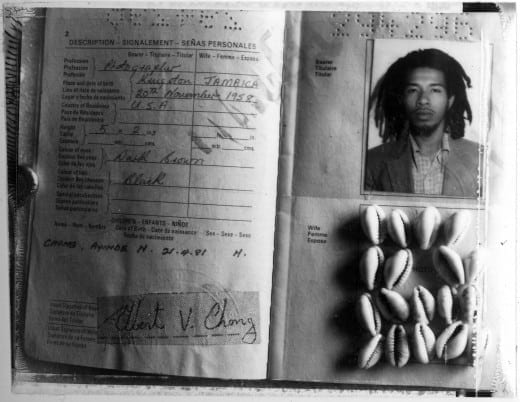 2
DESCRIPTION – SIGNALEMENT – SEÑAS PERSONALES
Bearer – Titulaire – Titular Wife – Femme – Esposa
Profession
Profession
Profesión
Photographer
Place and date of birth
Lieu et date de naissance
Lugar y fecha de nacimiento
Kingston JAMAICA
20th November 1958
Country of Residence
Pays de Résidence
País de Residencia
U.S.A
Height
Taille
Estatura
5 2
Colour of eyes
Couleur des yeux
Color de los ojos
Dark brown
Colour of hair
Couleur des cheveux
Color de los cabellos
Black
CHILDREN – ENFANTS – NIÑOS
Name – Nom – Nombre Date of Birth – Date de naissance – Fecha de nacimiento Sex – Sexe – Sexo
AYINDE M. 21-4-81 M.
Albert V. Chong
Bearer
Titulaire
Titular
Wife
Femme
Esposa